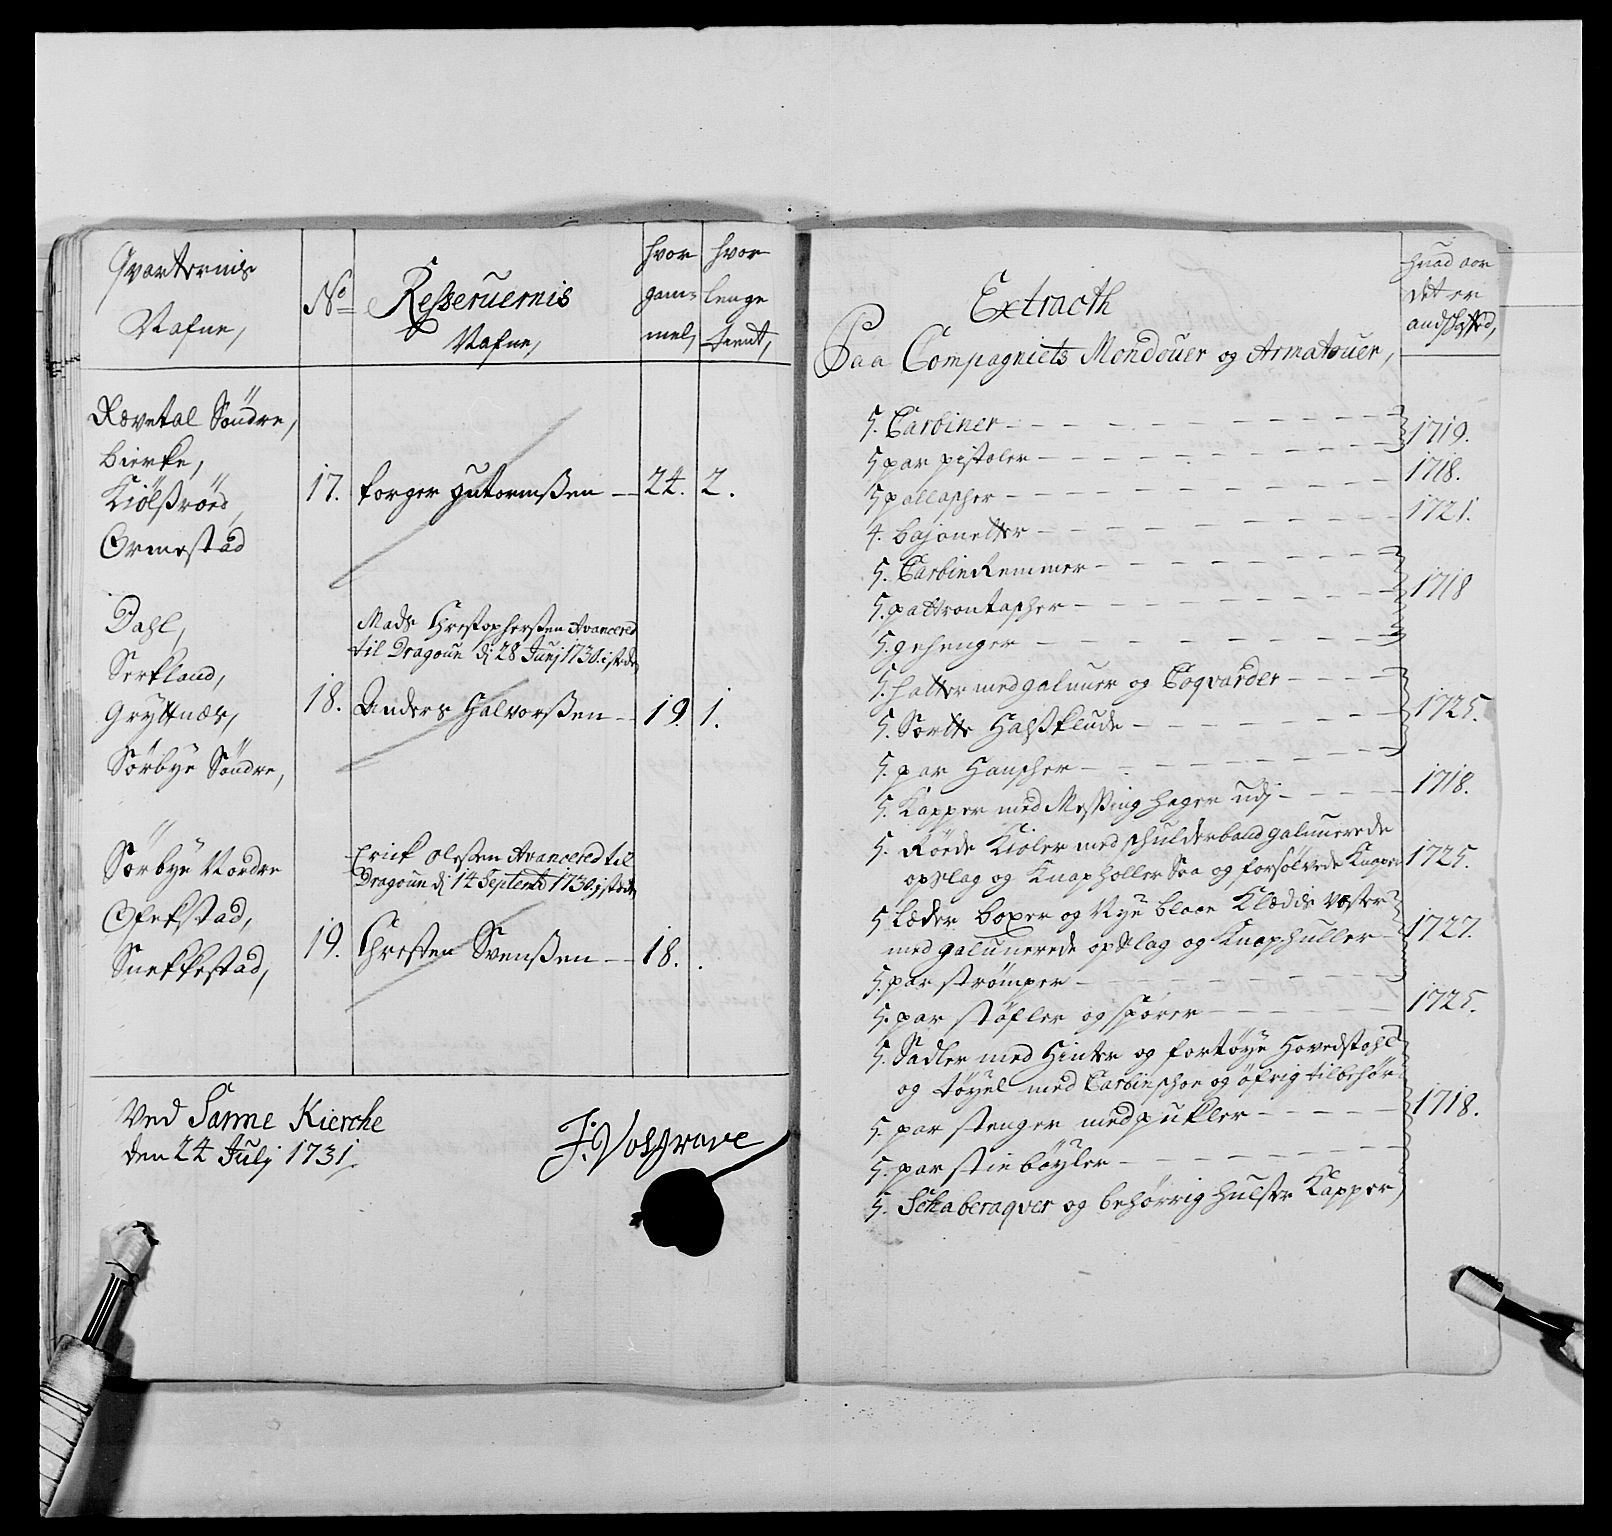 Qvarterniß
Nafne,
No
Resseruernis
Nafne,
hvor
gam=
mel,
hvor
lenge
tient,
Rævetal Söndre,
Bierke,
Kiölßröd,
Ormestad
17. Torger Gutormßen — 24. 2.
Dahl,
Serkland,
Gryttnæs,
Sörbye Söndre,
Mads Christophersen Avancered
til Dragoun dj 28 Junj 1730. i stede
18. Anders Halvorßen — 19. 1.
Sörbye Nordre
Ofekstad,
Snekkestad,
Erick Olessen Avancered til
Dragoun dj 14 Septemb 1730. i stede
19. Christen Svenßen — 18. .
Ved Sanne Kierche
den 24 Julj 1731.
Extracth
Paa Compagniets Mondouer og Armatouer,
hvad aar
det er
andskaffed,
5. Carbiner
5 par pistoler
1719.
5 pallascher
1718.
4. bajonetter
1721.
5. Carbin Remmer
5. pattrontascher
1718
5. gehenger
5. hatter med galuner og Coqvarder
5. Sortte Halßklude
1725.
5. par Hanscher
5. Kapper med Meßing hager udj
1718.
5. Röede Kioler med schulderband galunerede
opslag og Knaphuller Saa og forsölvede Knaper
1725.
5 Læder boxer og Nye blaae Klædes vester
med galunerede opslag og Knaphuller
1727.
5. par strömper
5. par stöfler og sporer
1725.
5. Sadler med Hinter og fortöye Hovedstohl
og töyel med Carbinschoe og öfrig tilbehör
5. par stenger med pukler
1718.
5. par stie böyler
5. Schaberaqver og behörrig hulster Kapper,